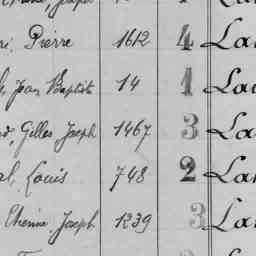 Joseph
Pierre 1612 4 La
Jean Baptiste 14 1 La
Gilles Joseph 1467 3 La
Louis 748 2 La
Etienne Joseph 1239 3 La